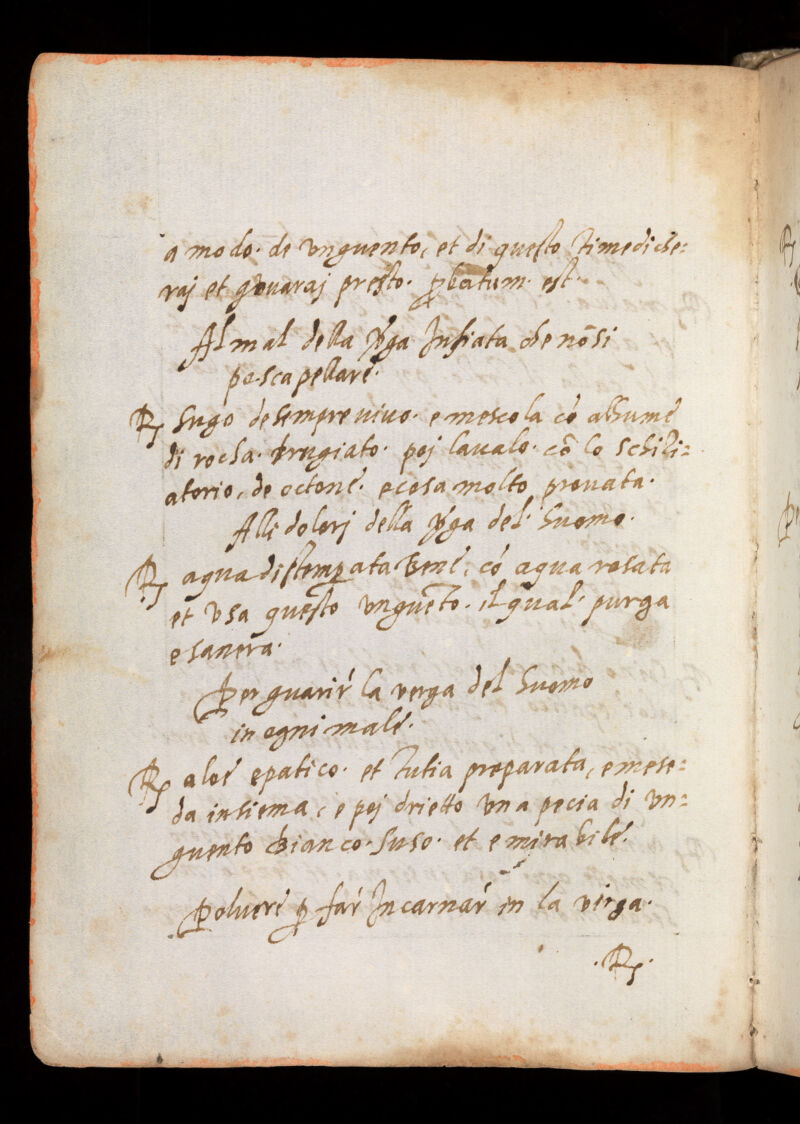 a modo. de unguento, et di questo timediche=
raj et giovaraj presto. ꝓbatum. est.
Al mal della v̄ga Infiata che nō si
po scapellare.
℞ Sugo de sempre vivo. e mescola cō allume
di rocha. brugiato. poj lavalo. cō lo schili=
atorio, de octone. e cosa molto provata.
Alli dolorj della v̄ga del. huomo.
℞ agua distemꝑata bene, cō agua rosata
et usa questo unguēto. il qual. purga
e sanera.
Per guarir la verga del huomo
in ogni male.
℞ aloe epatico. et tutia preparata, e mese=
da insiema, e poj drietto una pecia di un=
guento bianco. suso. et e mirabile.
Polvere ꝑ far Incarnar in la virga.
.℞.